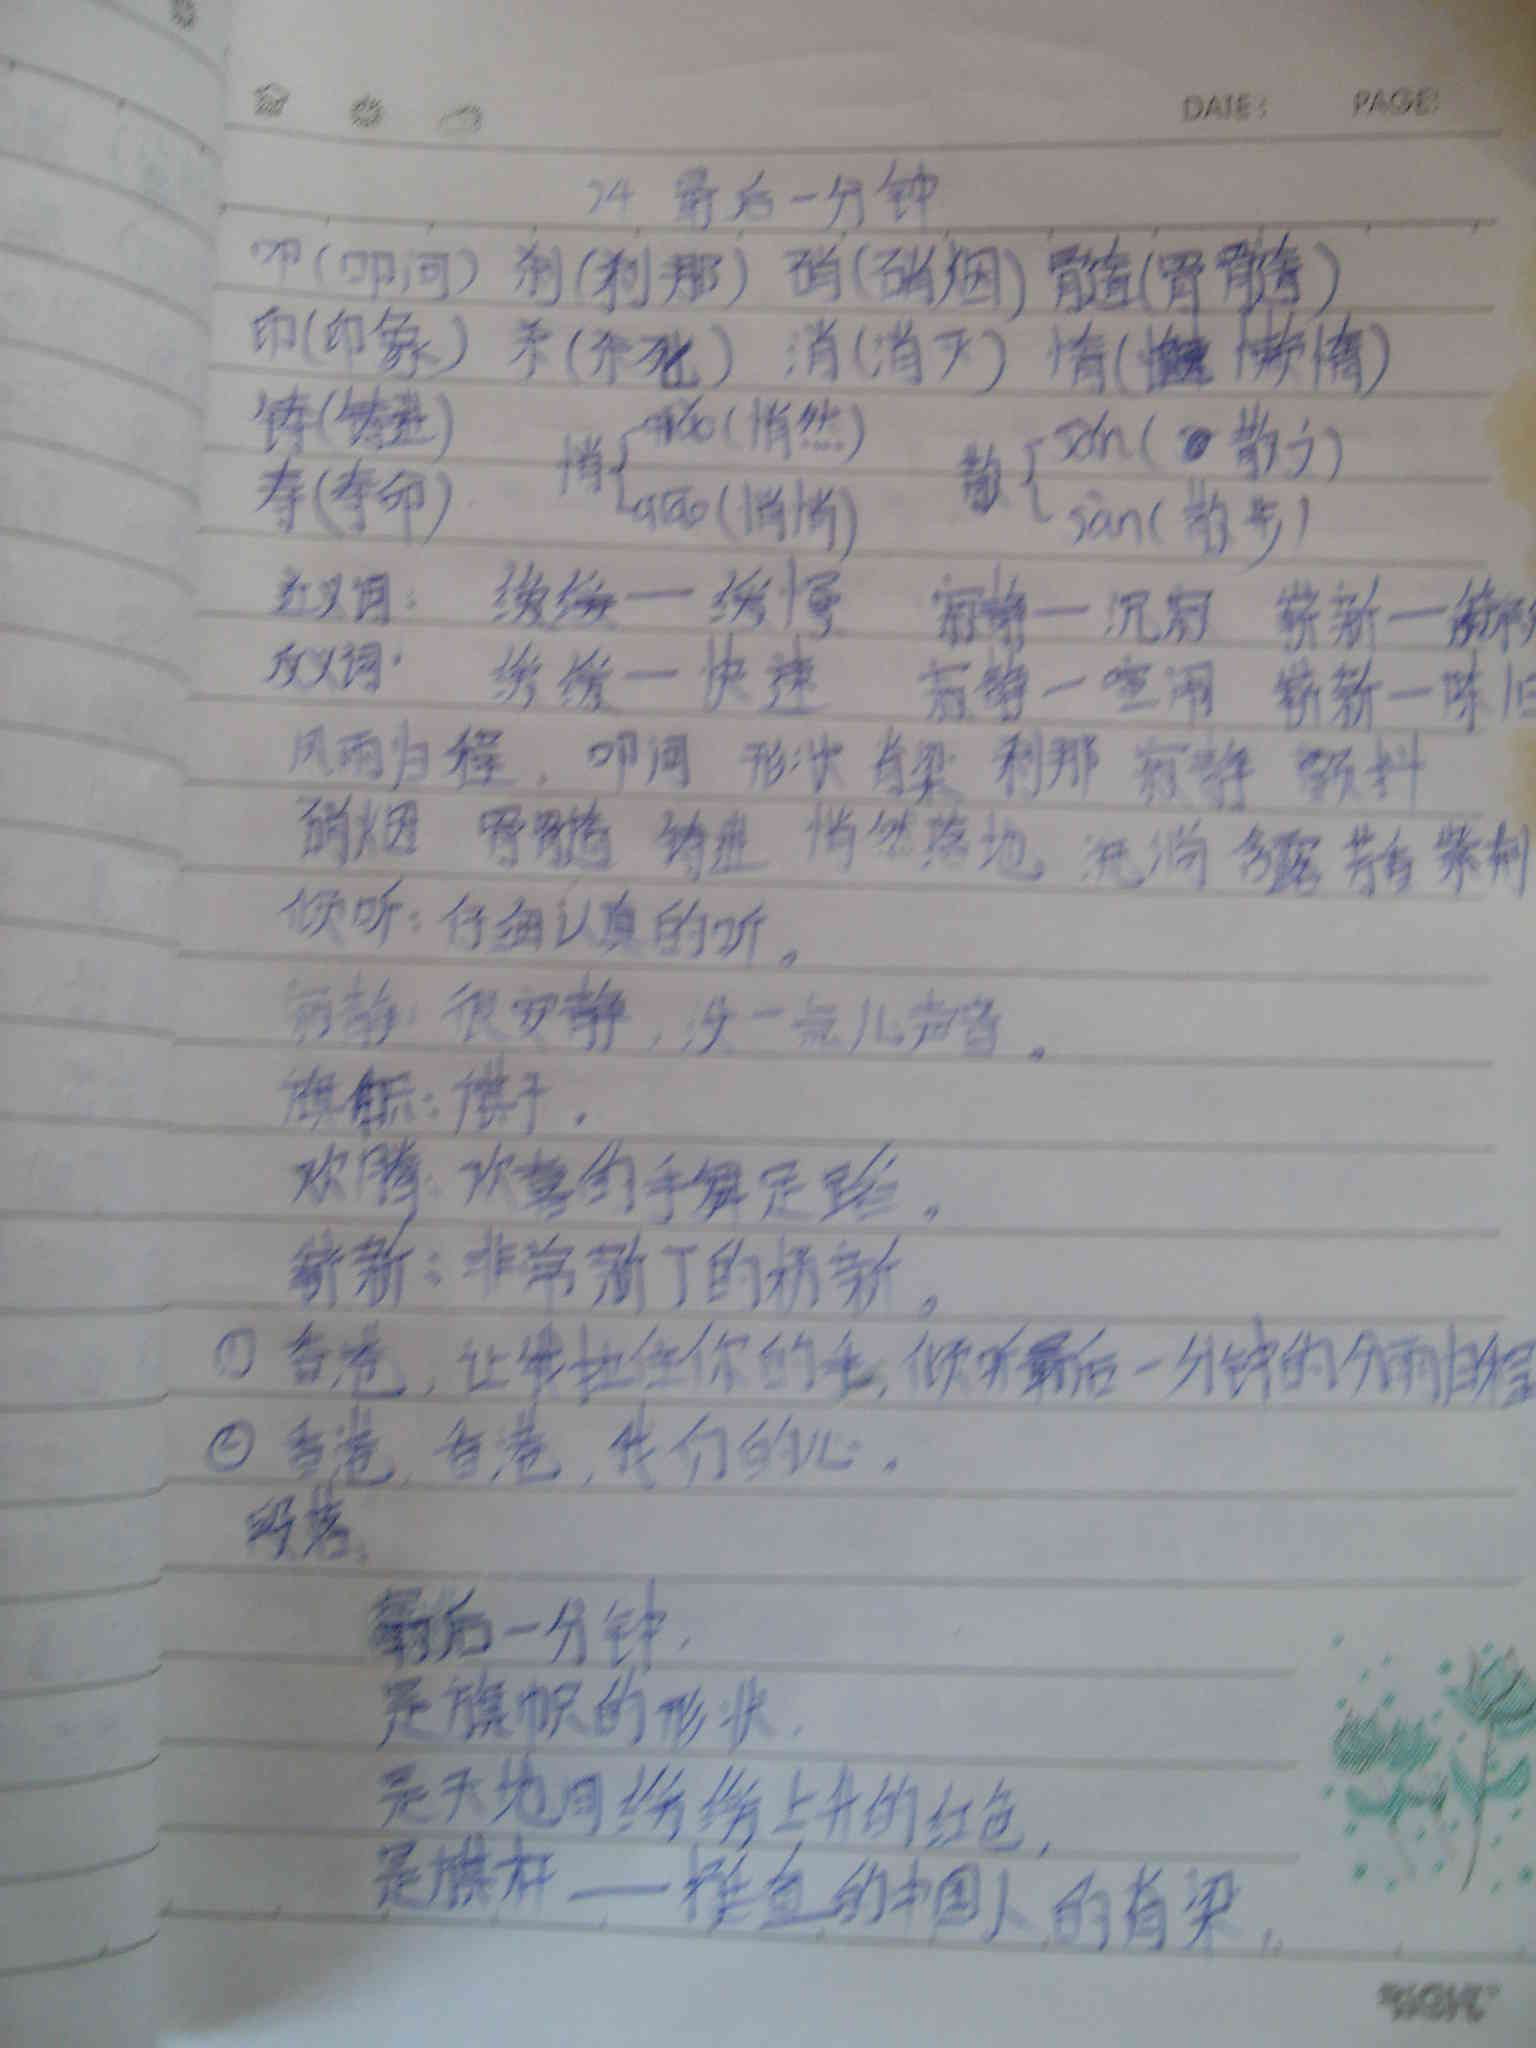 DATE: PAGE:
24 最后一分钟
叩(叩问) 刹(刹那) 硝(硝烟) 髓(骨髓)
印(印象) 杀(杀死) 消(消灭) 惰(懒惰)
铸(铸进) 悄 qiǎo(悄然) 散 sǎn(散文)
寿(寿命) qiāo(悄悄) sàn(散步)
近义词: 缓缓—缓慢 寂静—沉寂 崭新—
反义词: 缓缓—快速 寂静—喧闹 崭新—陈旧
风雨归程, 叩问 形状 脊梁 刹那 寂静 颤抖
硝烟 骨髓 铸进 悄然落地 流淌 含露 紫荆
倾听: 仔细认真的听。
寂静: 很安静,没一点儿声音。
旗帜: 旗子。
欢腾: 欢喜的手舞足蹈。
崭新: 非常新
① 香港,让我拉住你的手,倾听最后一分钟的分雨归程
② 香港,香港,我们的心。
段落:
最后一分钟,
是旗帜的形状,
是天地间缓缓上升的红色,
是旗杆——挺直的中国人的脊梁,